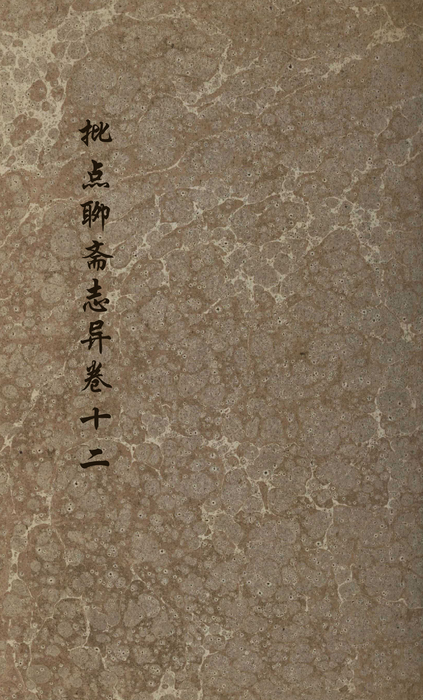 批点聊斋志异卷十二